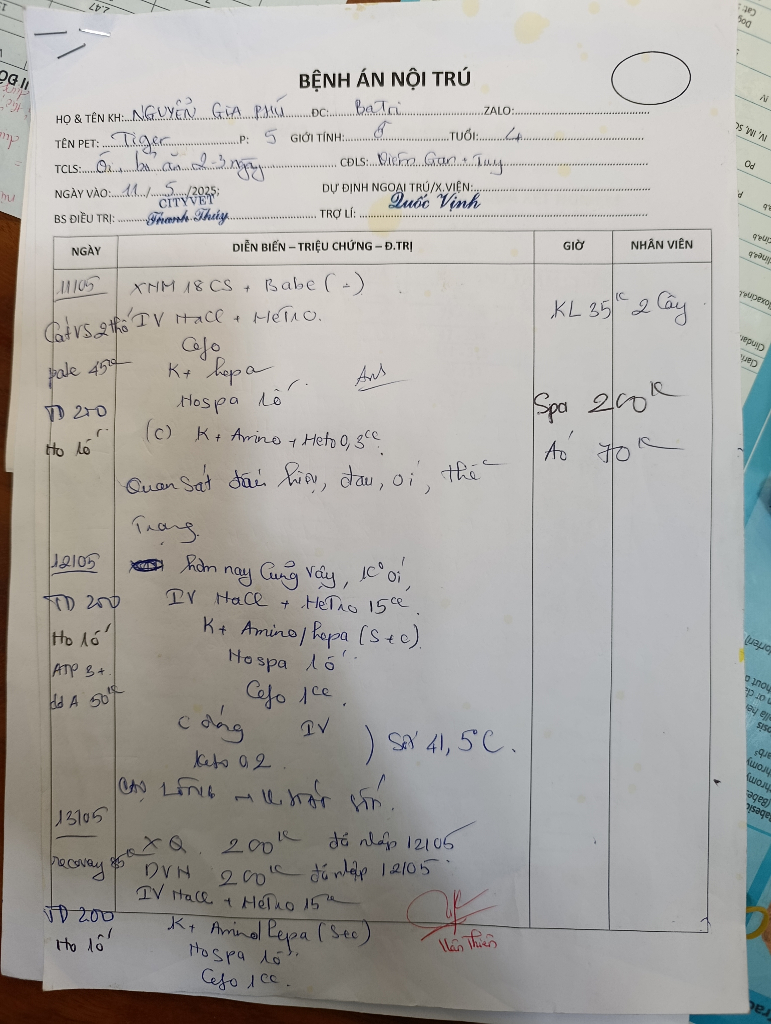 BỆNH ÁN NỘI TRÚ
HỌ & TÊN KH: NGUYỄN GIA PHÚ ĐC: Ba Tri ZALO:
TÊN PET: Tiger P: 5 GIỚI TÍNH: ♂ TUỔI: 4
TCLS: Ói, bỏ ăn 2-3 ngày CĐLS: Viêm Gan + Tụy
NGÀY VÀO: 11/5/2025; DỰ ĐỊNH NGOẠI TRÚ/X.VIỆN:
CITYVET
BS ĐIỀU TRỊ: Thanh Thúy TRỢ LÍ: Quốc Vịnh
NGÀY DIỄN BIẾN – TRIỆU CHỨNG – Đ.TRỊ GIỜ NHÂN VIÊN
11/05 XNM 18CS + Babe (-)
KL 35K 2 Cây
IV NaCl + Metro
Cefo
pate 45K K+ hepa
Hospa 1ố
TD 250 Spa 200K
Ho 1ố (C) K+ Amino + Meto 0,3cc Áó 70K
Quan Sát dấu hiệu, đau, ói, thể
Trạng.
12/05 hôm nay Cũng vậy, 1C° ói,
TD 200 IV NaCl + Metro 15cc
Ho 1ố K+ Amino/hepa (S+C)
ATP 3+ Hospa 1ố
dd A 50K Cefo 1cc.
C đống IV ) Sốt 41,5°C.
Keto 0.2
13/05
XQ 200K đã nhập 12/05
recovery 85K DVN 200K đã nhập 12/05
IV NaCl + Metro 15cc
TD 200 K+ Amino/hepa (S+C)
Ho 1ố Hospa 1ố
Cefo 1cc.